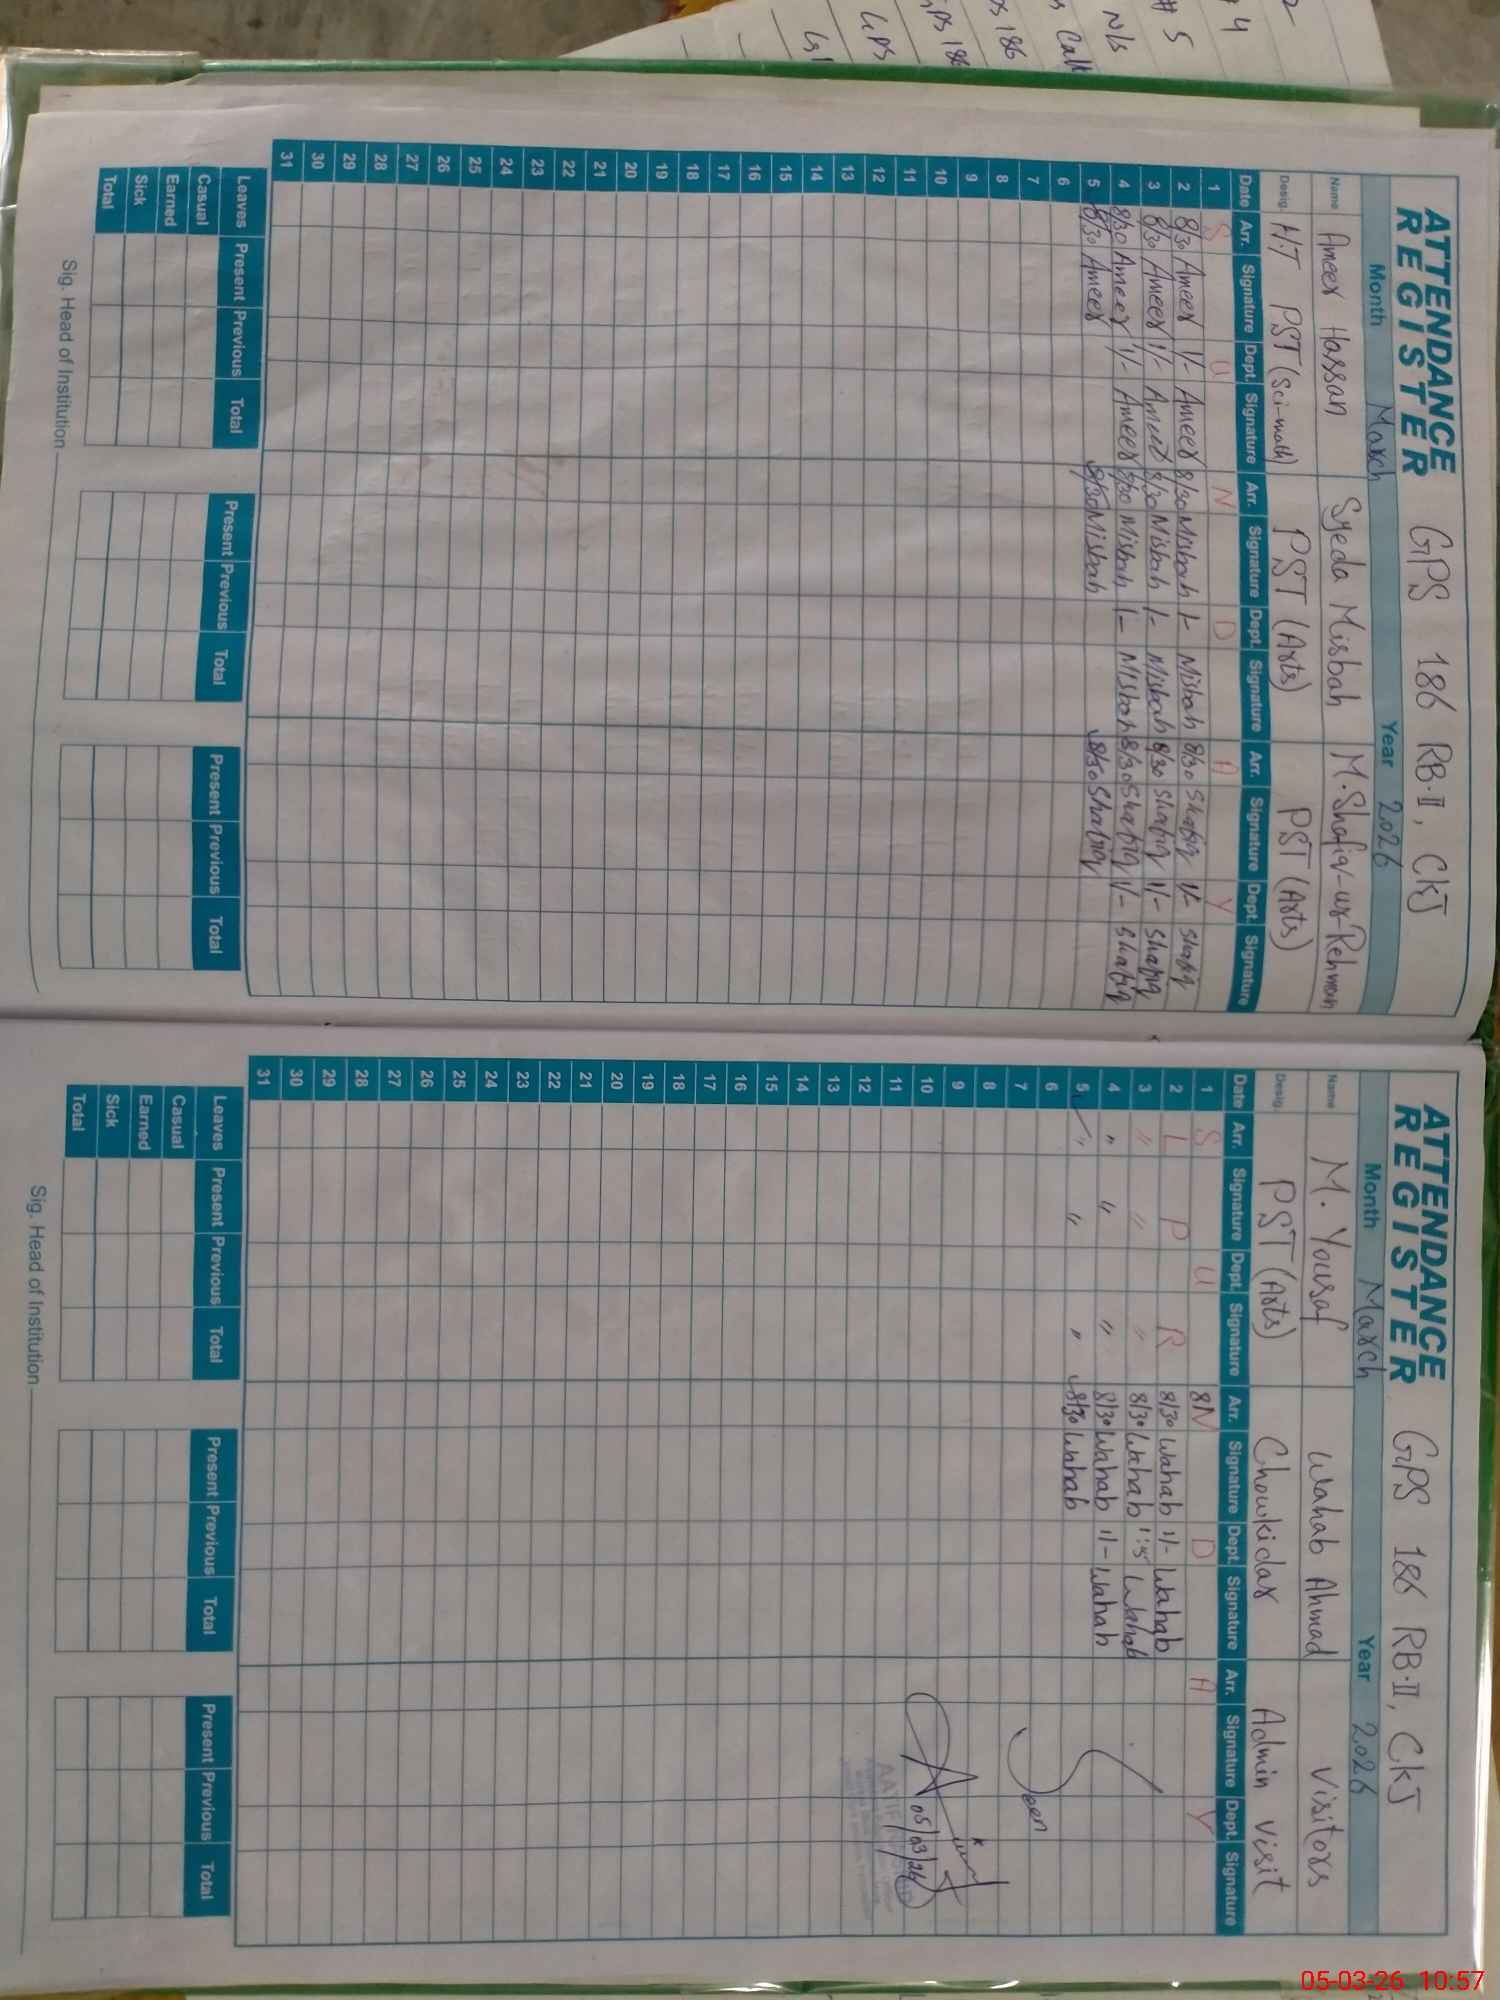 2
# 4
# 5
N/s
Call
186
186
GPS
ATTENDANCE REGISTER GPS 186 RB·II, CKJ
Month March Year 2026
Name Ameer Hassan Syeda Misbah M. Shafiq-ur-Rehman
Desig. H.T PST (Sci-math) PST (Arts) PST (Arts)
Date Arr. Signature Dept. Signature Arr. Signature Dept. Signature Arr. Signature Dept. Signature
1 S U N D A Y
2 8/30 Ameer 1/- Ameer 8/30 Misbah 1- Misbah 8/30 Shafiq 1/- Shafiq
3 8/30 Ameer 1/- Ameer 8/30 Misbah 1- Misbah 8/30 Shafiq 1/- Shafiq
4 8/30 Ameer 1/- Ameer 8/30 Misbah 1- Misbah 8/30 Shafiq 1/- Shafiq
5 8/30 Ameer 8/30 Misbah 8/30 Shafiq
6
7
8
9
10
11
12
13
14
15
16
17
18
19
20
21
22
23
24
25
26
27
28
29
30
31
Leaves Present Previous Total Present Previous Total Present Previous Total
Casual
Earned
Sick
Total
Sig. Head of Institution
ATTENDANCE REGISTER GPS 186 RB·II, CKJ
Month March Year 2026
Name M. Yousaf Wahab Ahmad Visitors
Desig. PST (Arts) Chowkidar Admin Visit
Date Arr. Signature Dept. Signature Arr. Signature Dept. Signature Arr. Signature Dept. Signature
1 S U 8 N D A Y
2 L P R 8/30 Wahab 1/- Wahab
3 " " " 8/30 Wahab 1:45 Wahab
4 " " " 8/30 Wahab 1/- Wahab
5 " " " 8/30 Wahab
6
7 Seen
8
9
10 05/03/26
11
12
13
14
15
16
17
18
19
20
21
22
23
24
25
26
27
28
29
30
31
Leaves Present Previous Total Present Previous Total Present Previous Total
Casual
Earned
Sick
Total
Sig. Head of Institution
05-03-26 10:57